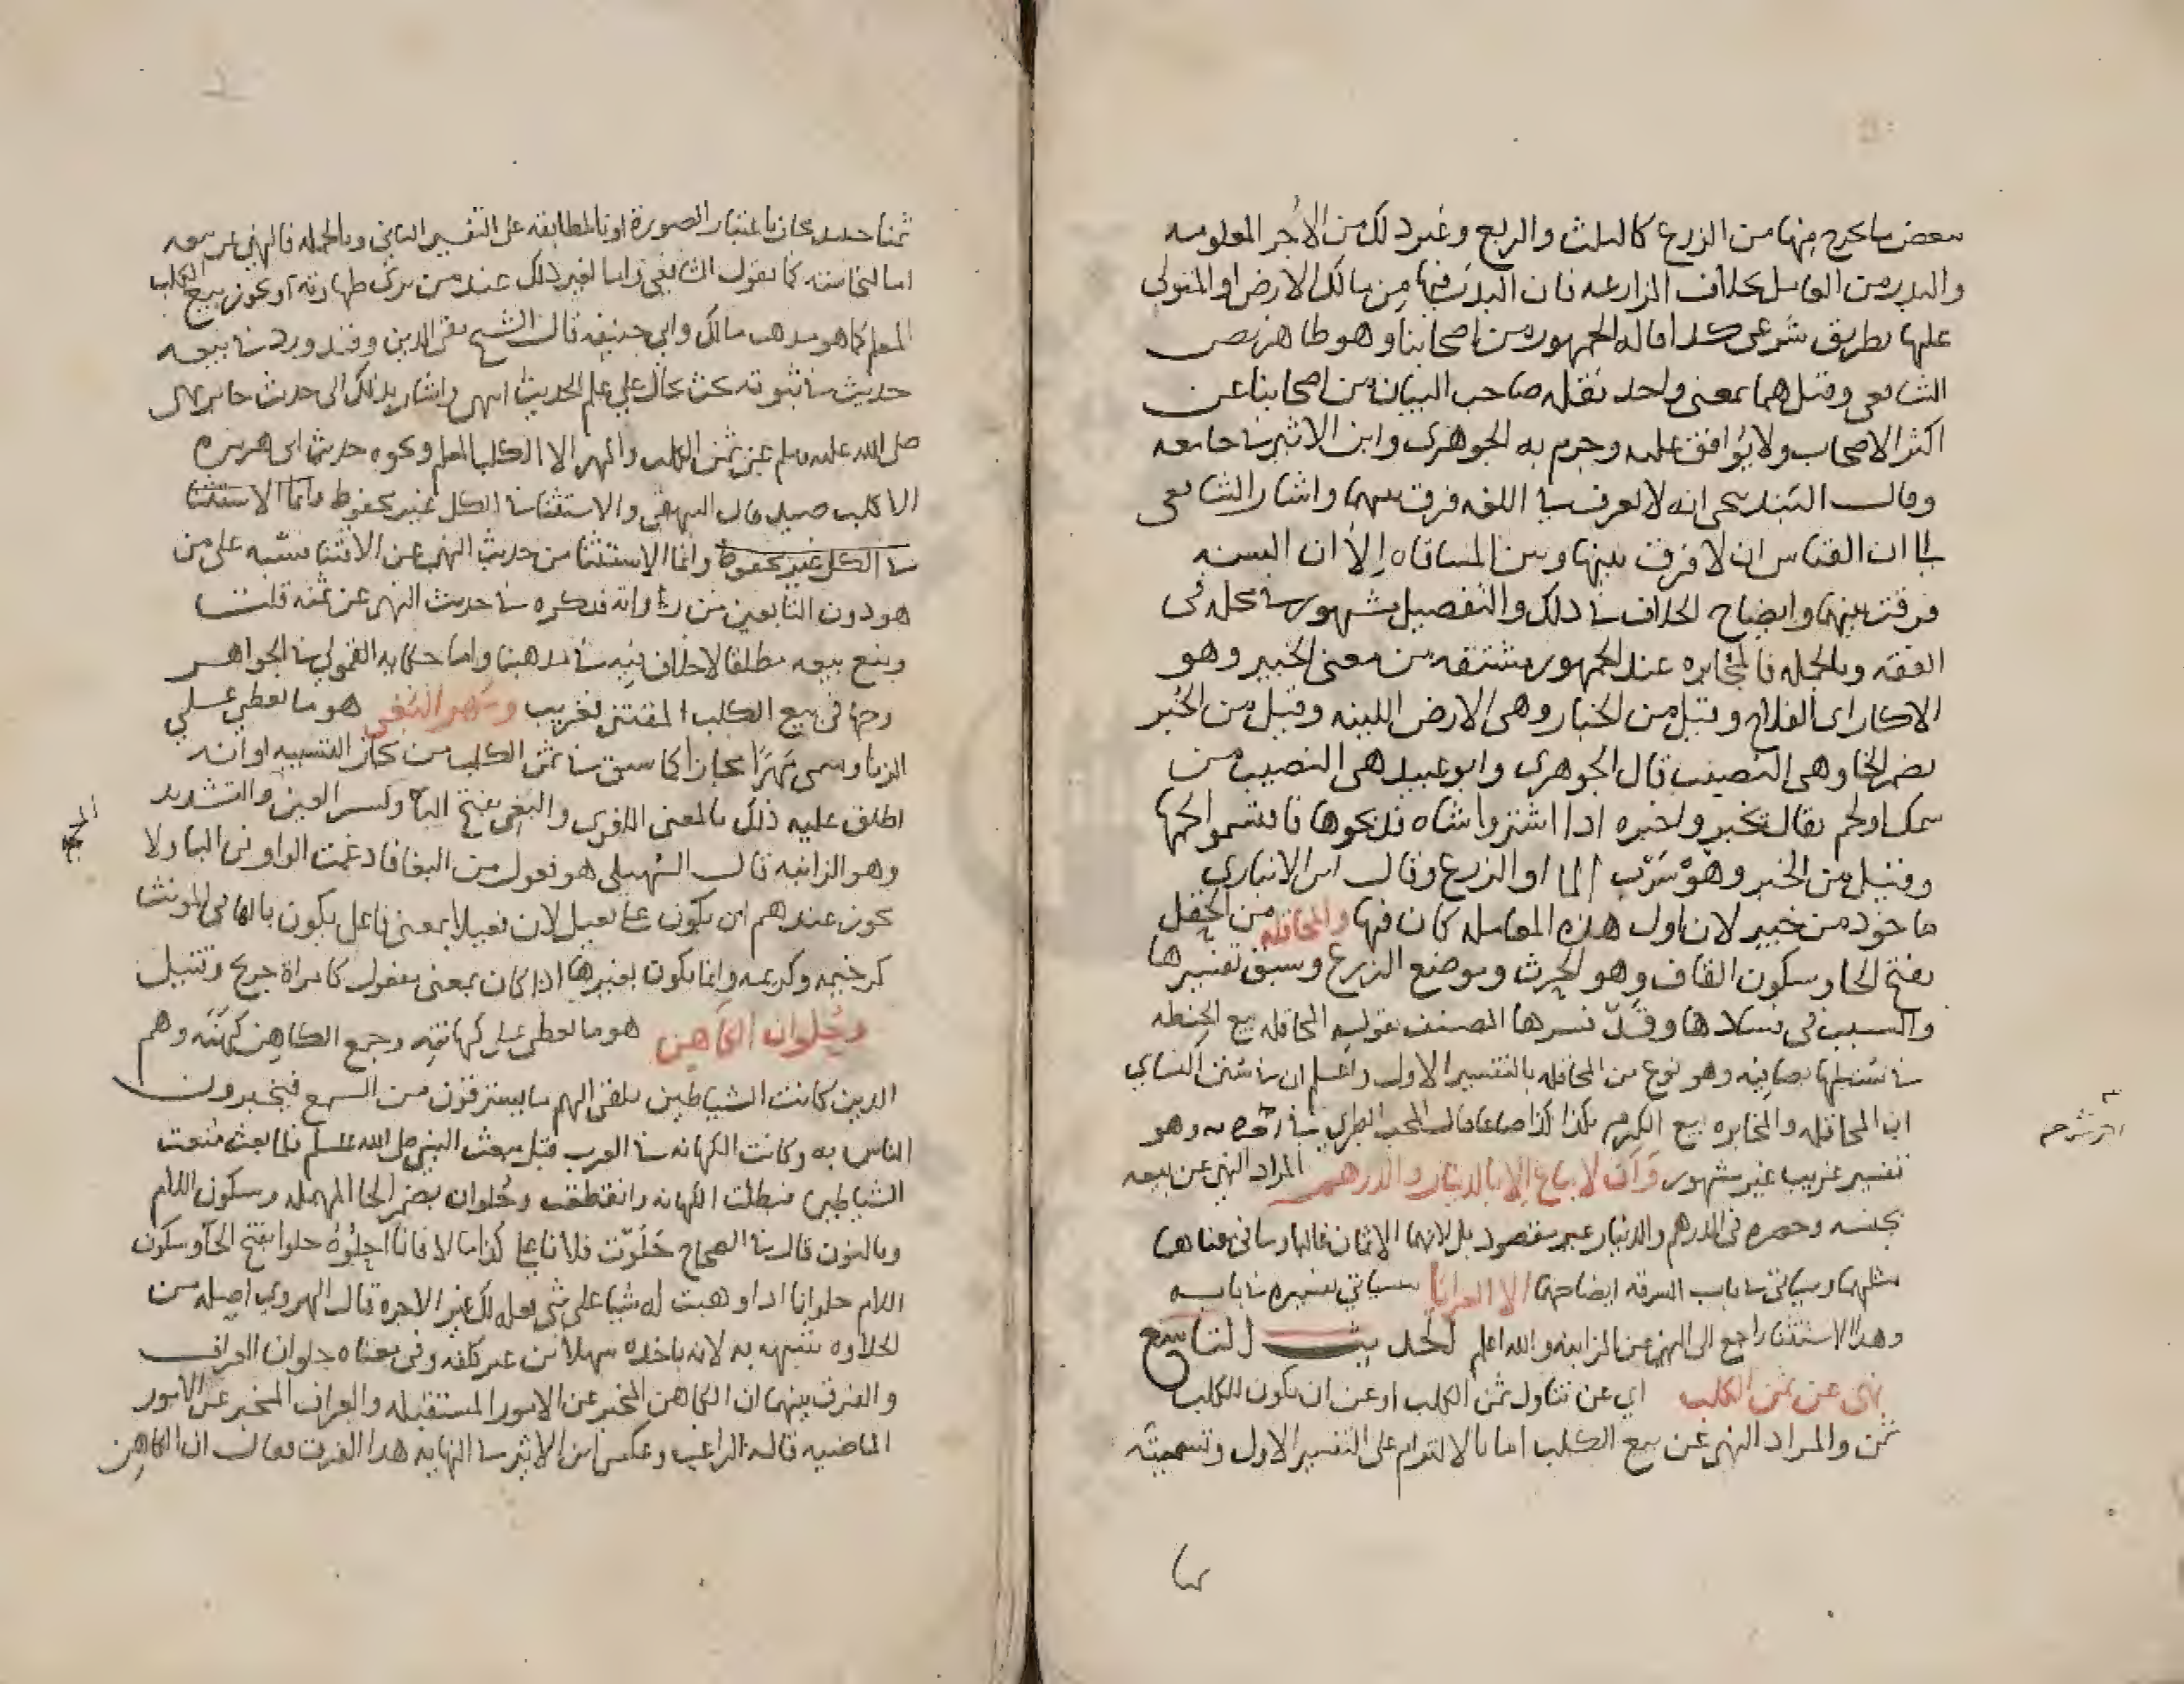 ببعض ما يخرج منها من الزرع كالثلث والربع وغير ذلك من الاجر المعلومه
والبدر من العامل بخلاف المزارعه فان البدر فيها من مالك الارض او المتولي
عليها بطريق شرعي كدا قاله الجمهور من اصحابنا وهو ظاهر نص
الشافعي وقيل هما بمعنى واحد نقله صاحب البيان من اصحابنا عن
اكثر الاصحاب ولا يوافق عليه وجزم به الجوهري وابن الاثير في جامعه
وقال البندنيجي انه لا يعرف في اللغه فرق بينهما واشار الشافعي
الى ان القياس ان لا فرق بينها وبين المساقاه إلا ان السنه
فرقت بينهما وايضاح الخلاف في ذلك والتفصيل مشهور في محله في
الفقه وبالجمله فالمخابره عند الجمهور مشتقه من معنى الخبير وهو
الاكار اي الفلاح وقيل من الخبار وهي الارض اللينه وقيل من الخُبر
بضم الخا وهي النصيب قال الجوهري وابو عبيد هي النصيب من
سمك او لحم يقال تخبروا خبره ادا اشتروا شاه فدبحوها فاقتسموا لحمها
وقيل من الخبر وهو شرب الما او الزرع وقال ابن الانباري
ماخود من خيبر لان اول هذه المعامله كان فيها والمحاقله من الحقل
بفتح الحا وسكون القاف وهو الحرث وموضع الزرع وسبق تفسيرها
والسبب في فسادها وقد فسرها المصنف بقوله المحاقله بيع الحنطه
في سنبلها بصافيه وهو نوع من المحاقله بالتفسير الاول واعلم ان في سنن النساي
ان المحاقله والمخابره بيع الكرم بكذا كذا صاعا قال المحب الطبري في وهو
تفسير غريب غير مشهور وَأن لا يباع إلا بالدينار والدرهم المراد النهي عن بيعه
بجنسه وحصره في الدرهم والدينار غير مقصود بل لانهما الاثمان غالبا وما في معناهما
مثلهما وسياتي في باب السرقه ايضاحهما الا العرايا سياتي تفسيره في بابه
وهدا الاستثنا راجع الى النهي عن المزابنه والله اعلم الحديث التاسع
نهى عن ثمن الكلب اي عن تناول ثمن الكلب او عن ان يكون للكلب
ثمن والمراد النهي عن بيع الكلب اما بالالتزام على التفسير الاول وتسميته
ثمنا حينئذ مجاز باعتبار الصورة او بالمطابقه على التفسير الثاني وبالجمله فالنهي عن بيعه
اما لنجاسته كما يقول الشافعي واما لغير ذلك عند من يرى طهارته او يجوز بيع الكلب
المعلم كما هو مدهب مالك وابي حنيفه قال الشيخ تقي الدين وقد ورد في بيعه
حديث في ثبوته بحث يحال على علم الحديث انتهى واشار بذلك الى حديث جابر نهى
صلى الله عليه وسلم عن ثمن الكلب والهر الا الكلب المعلم ونحوه حديث ابي هريره
الا كلب صيد قال البيهقي والاستثنا في الكل غير محفوظ وانما الاستثنا
في الكل غير محفوظ وانما الاستثنا من حديث النهي عن الاقتنا فشبه على من
هو دون التابعين من رواته فدكره في حديث النهي عن ثمنه قلت
ومنع بيعه مطلقا لا خلاف فيه في مدهبنا واما حكايه القمولي في الجواهر
وجها في بيع الكلب المقتنى فغريب ومهر البغي هو ما تعطى على
الزنا وسمى مهرًا مجازا كما سبق في ثمن الكلب من مجاز التشبيه او انه
اطلق عليه ذلك بالمعنى اللغوي والبغي بفتح البا وكسر الغين والتشديد
وهو الزانيه قال السُّهيلي هو فعول من البغا فادغمت الواو في اليا ولا
يجوز عندهم ان يكون على فعيل لان فعيلا بمعنى فاعل يكون بالها في المونث
كرحيمه وكريمه وانما يكون بغيرها اذا كان بمعنى مفعول كامراة جريح وقتيل
وحُلوان الكاهن هو ما يعطى على كهانته وجمع الكاهن كهَنَه وهم
الدين كانت الشياطين تلقي اليهم ما يسترقون من السمع فيخبرون
الناس به وكانت الكهانه في العرب قبل مبعث النبي صلى الله عليه وسلم فلما بعث منعت
الشياطين فبطلت الكهانه وانقطعت وحُلوان بضم الحا المهمله وسكون اللام
وبالنون قال في الصحاح حَلَوْت فلانا على كذا مالا فانا احلُوُهُ حلوا بفتح الحا وسكون
اللام حلوانا ادا وهبت له شيا على شي يفعله لك غير الاجره قال الهروي اصله من
الحلاوه شبه به لانه ياخده سهلا من غير كلفه وفي معناه حلوان العراف
والفرق بينهما ان الكاهن المخبر عن الامور المستقبله والعراف المخبر عن الامور
الماضيه قاله الراغب وعكس ابن الاثير في النهايه هدا الفرق فقال ان الكاهن